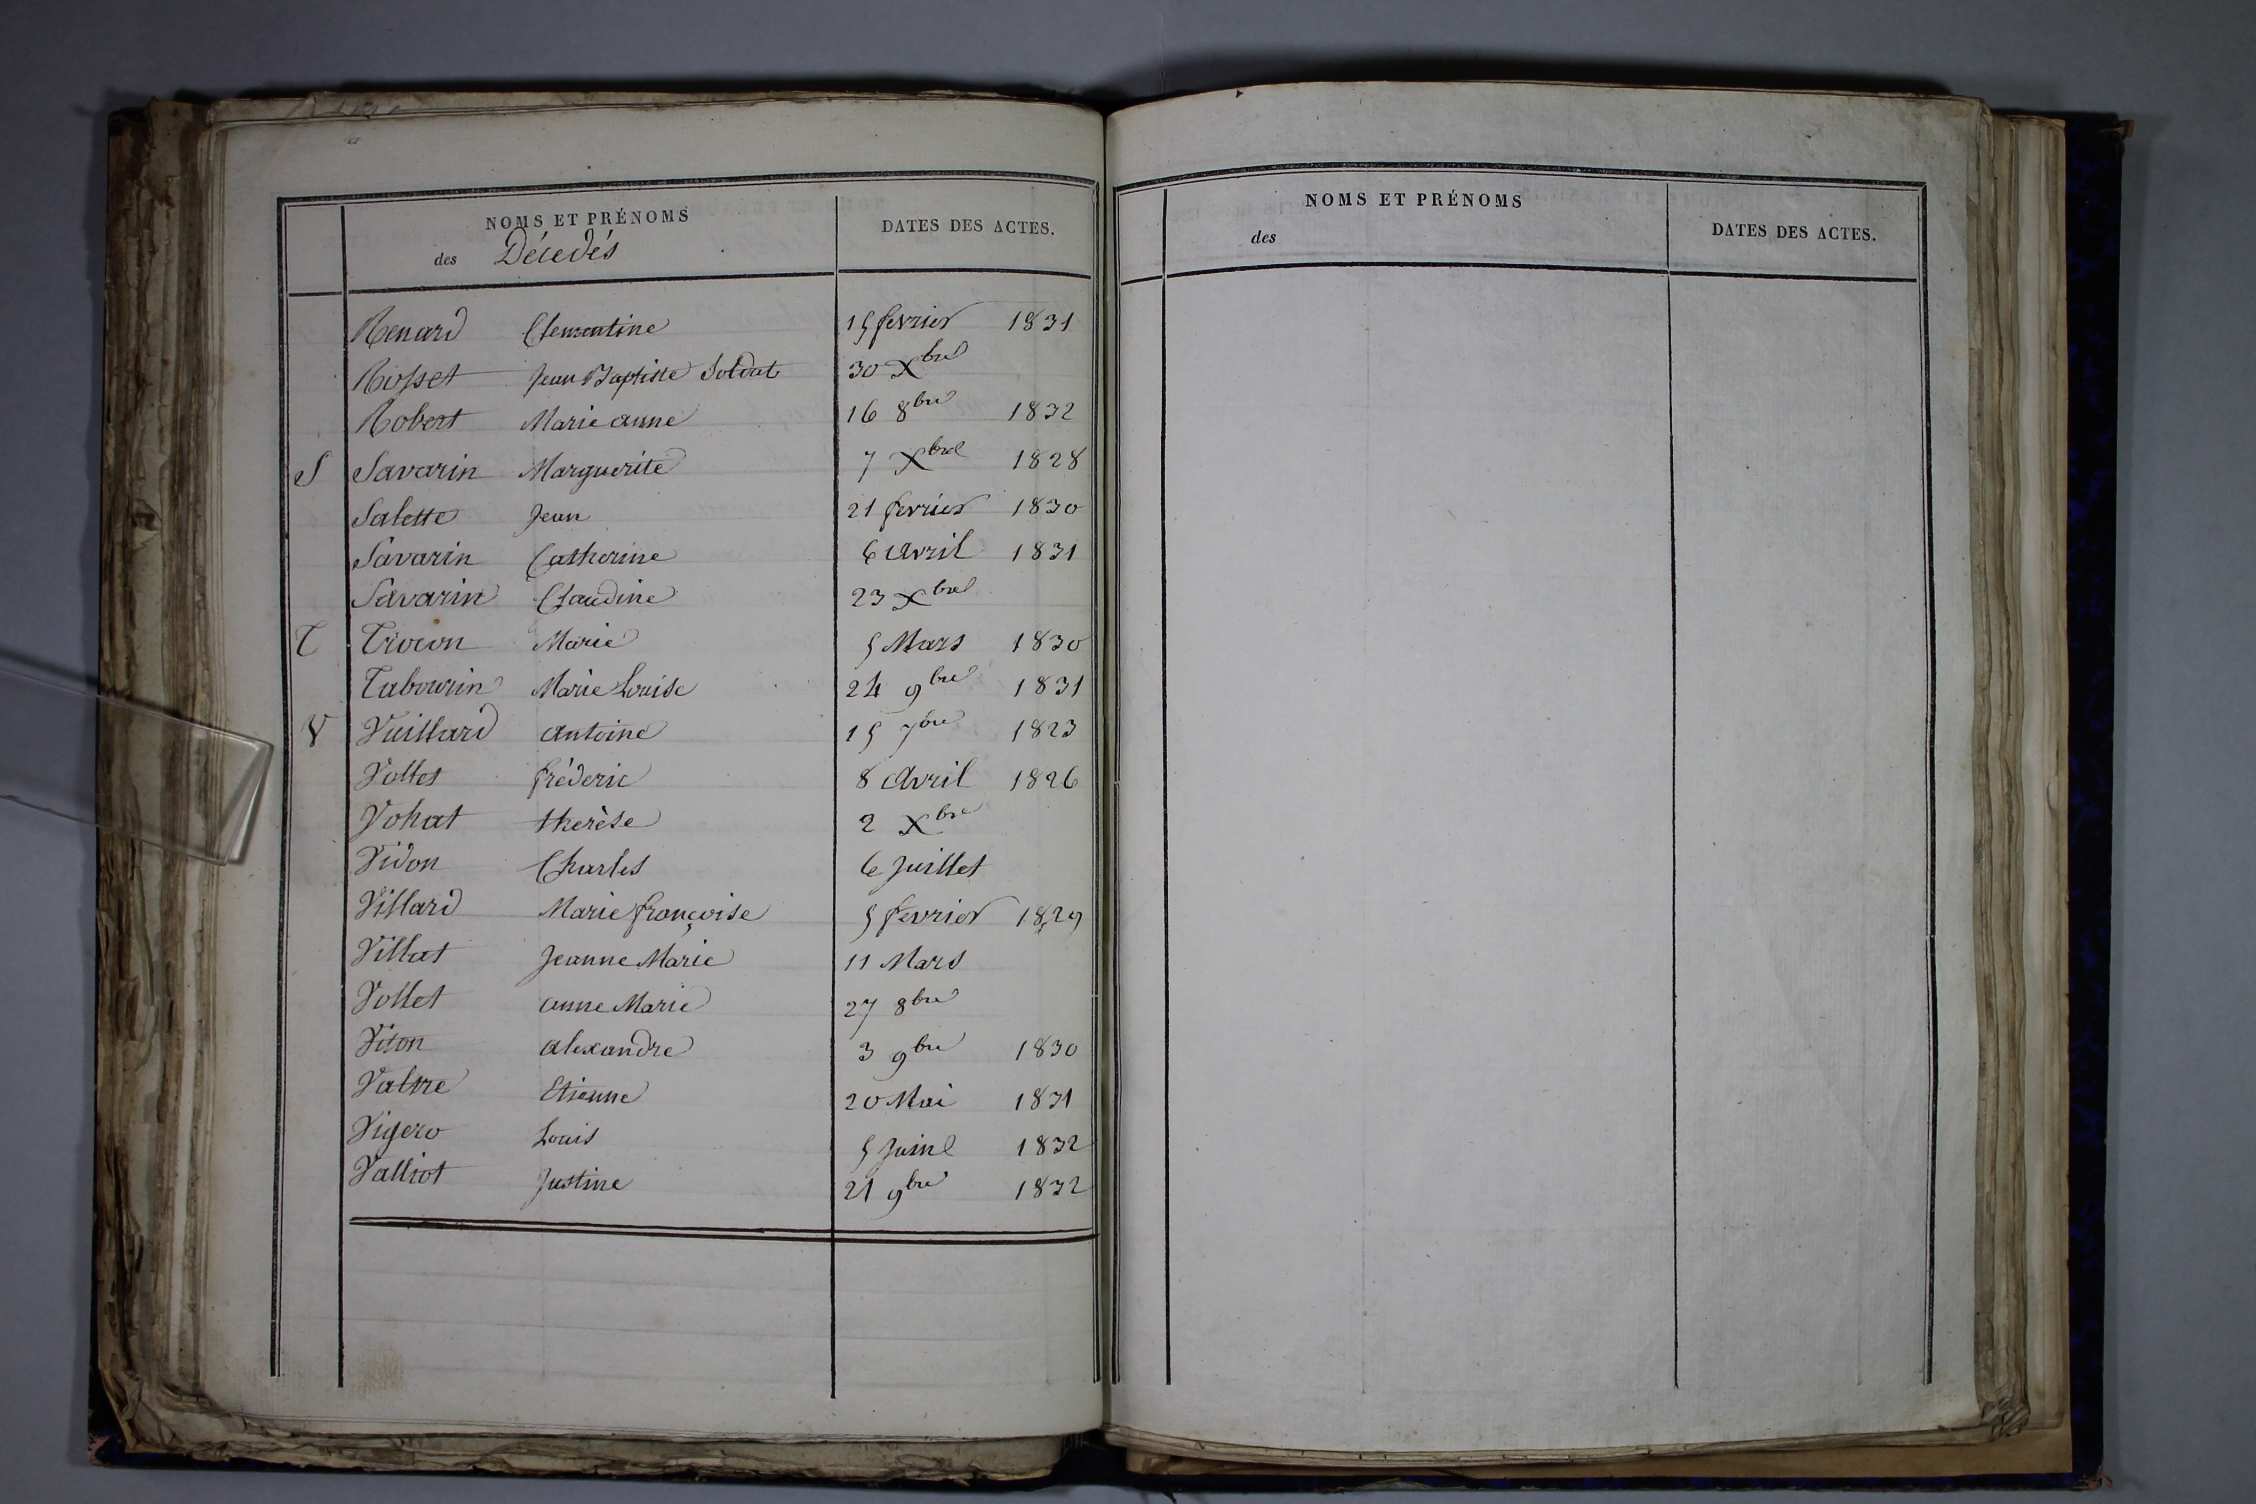 NOMS ET PRÉNOMS
des Décedés
DATES DES ACTES.
Renard Clementine 15 fevrier 1831
Rosset Jean Baptiste Soldat 30 Xbre
Robert Marie anne 16 8bre 1832
S Savarin Marguerite 7 Xbre 1828
Salette Jean 21 fevrier 1830
Savarin Catherine 6 Avril 1831
Savarin Claudine 23 Xbre
T Trocon Marie 5 Mars 1830
Tabourin Marie Louise 24 9bre 1831
V Vuillard antoine 15 7bre 1823
Voltes fréderic 8 Avril 1826
Vohat therèse 2 Xbre
Vidon Charles 6 Juillet
Villard Marie françoise 5 fevrier 1829
Villat Jeanne Marie 11 Mars
Vollet anne Marie 27 8bre
Viton alexandre 3 9bre 1830
Valtre Etienne 20 Mai 1831
Vigero Louis 5 Juin 1832
Valliot Justine 21 9bre 1832
NOMS ET PRÉNOMS
des
DATES DES ACTES.